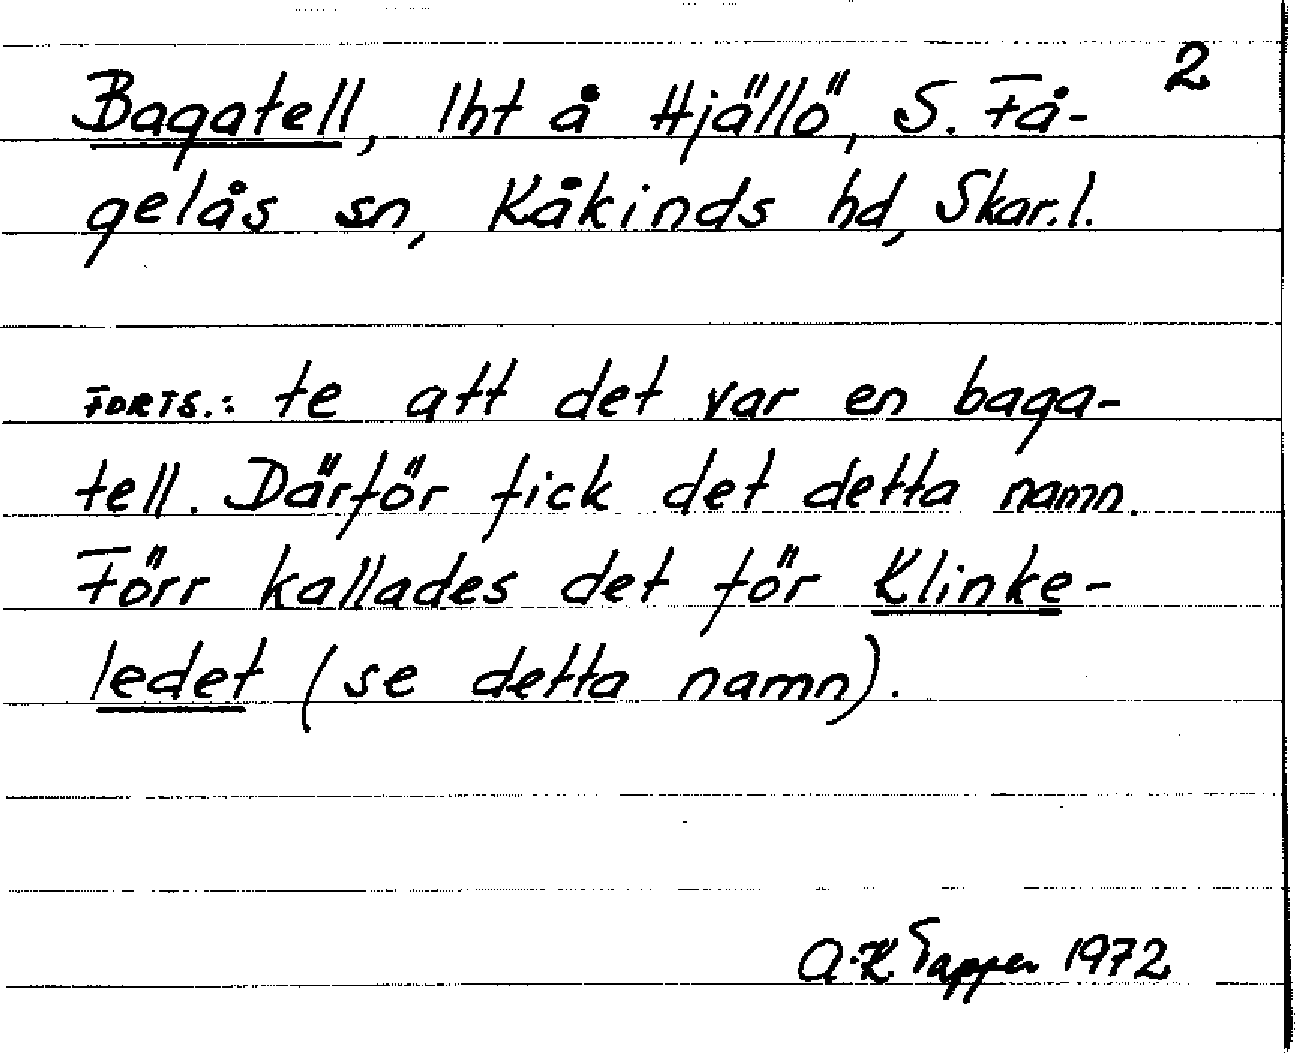 2
Bagatell, lht å Hjällö, S. Få-
gelås sn, Kåkinds hd, Skar.l.
FORTS.: te att det var en baga-
tell. Därför fick det detta namn.
Förr kallades det för Klinke-
ledet (se detta namn).
A-K Tapper 1972